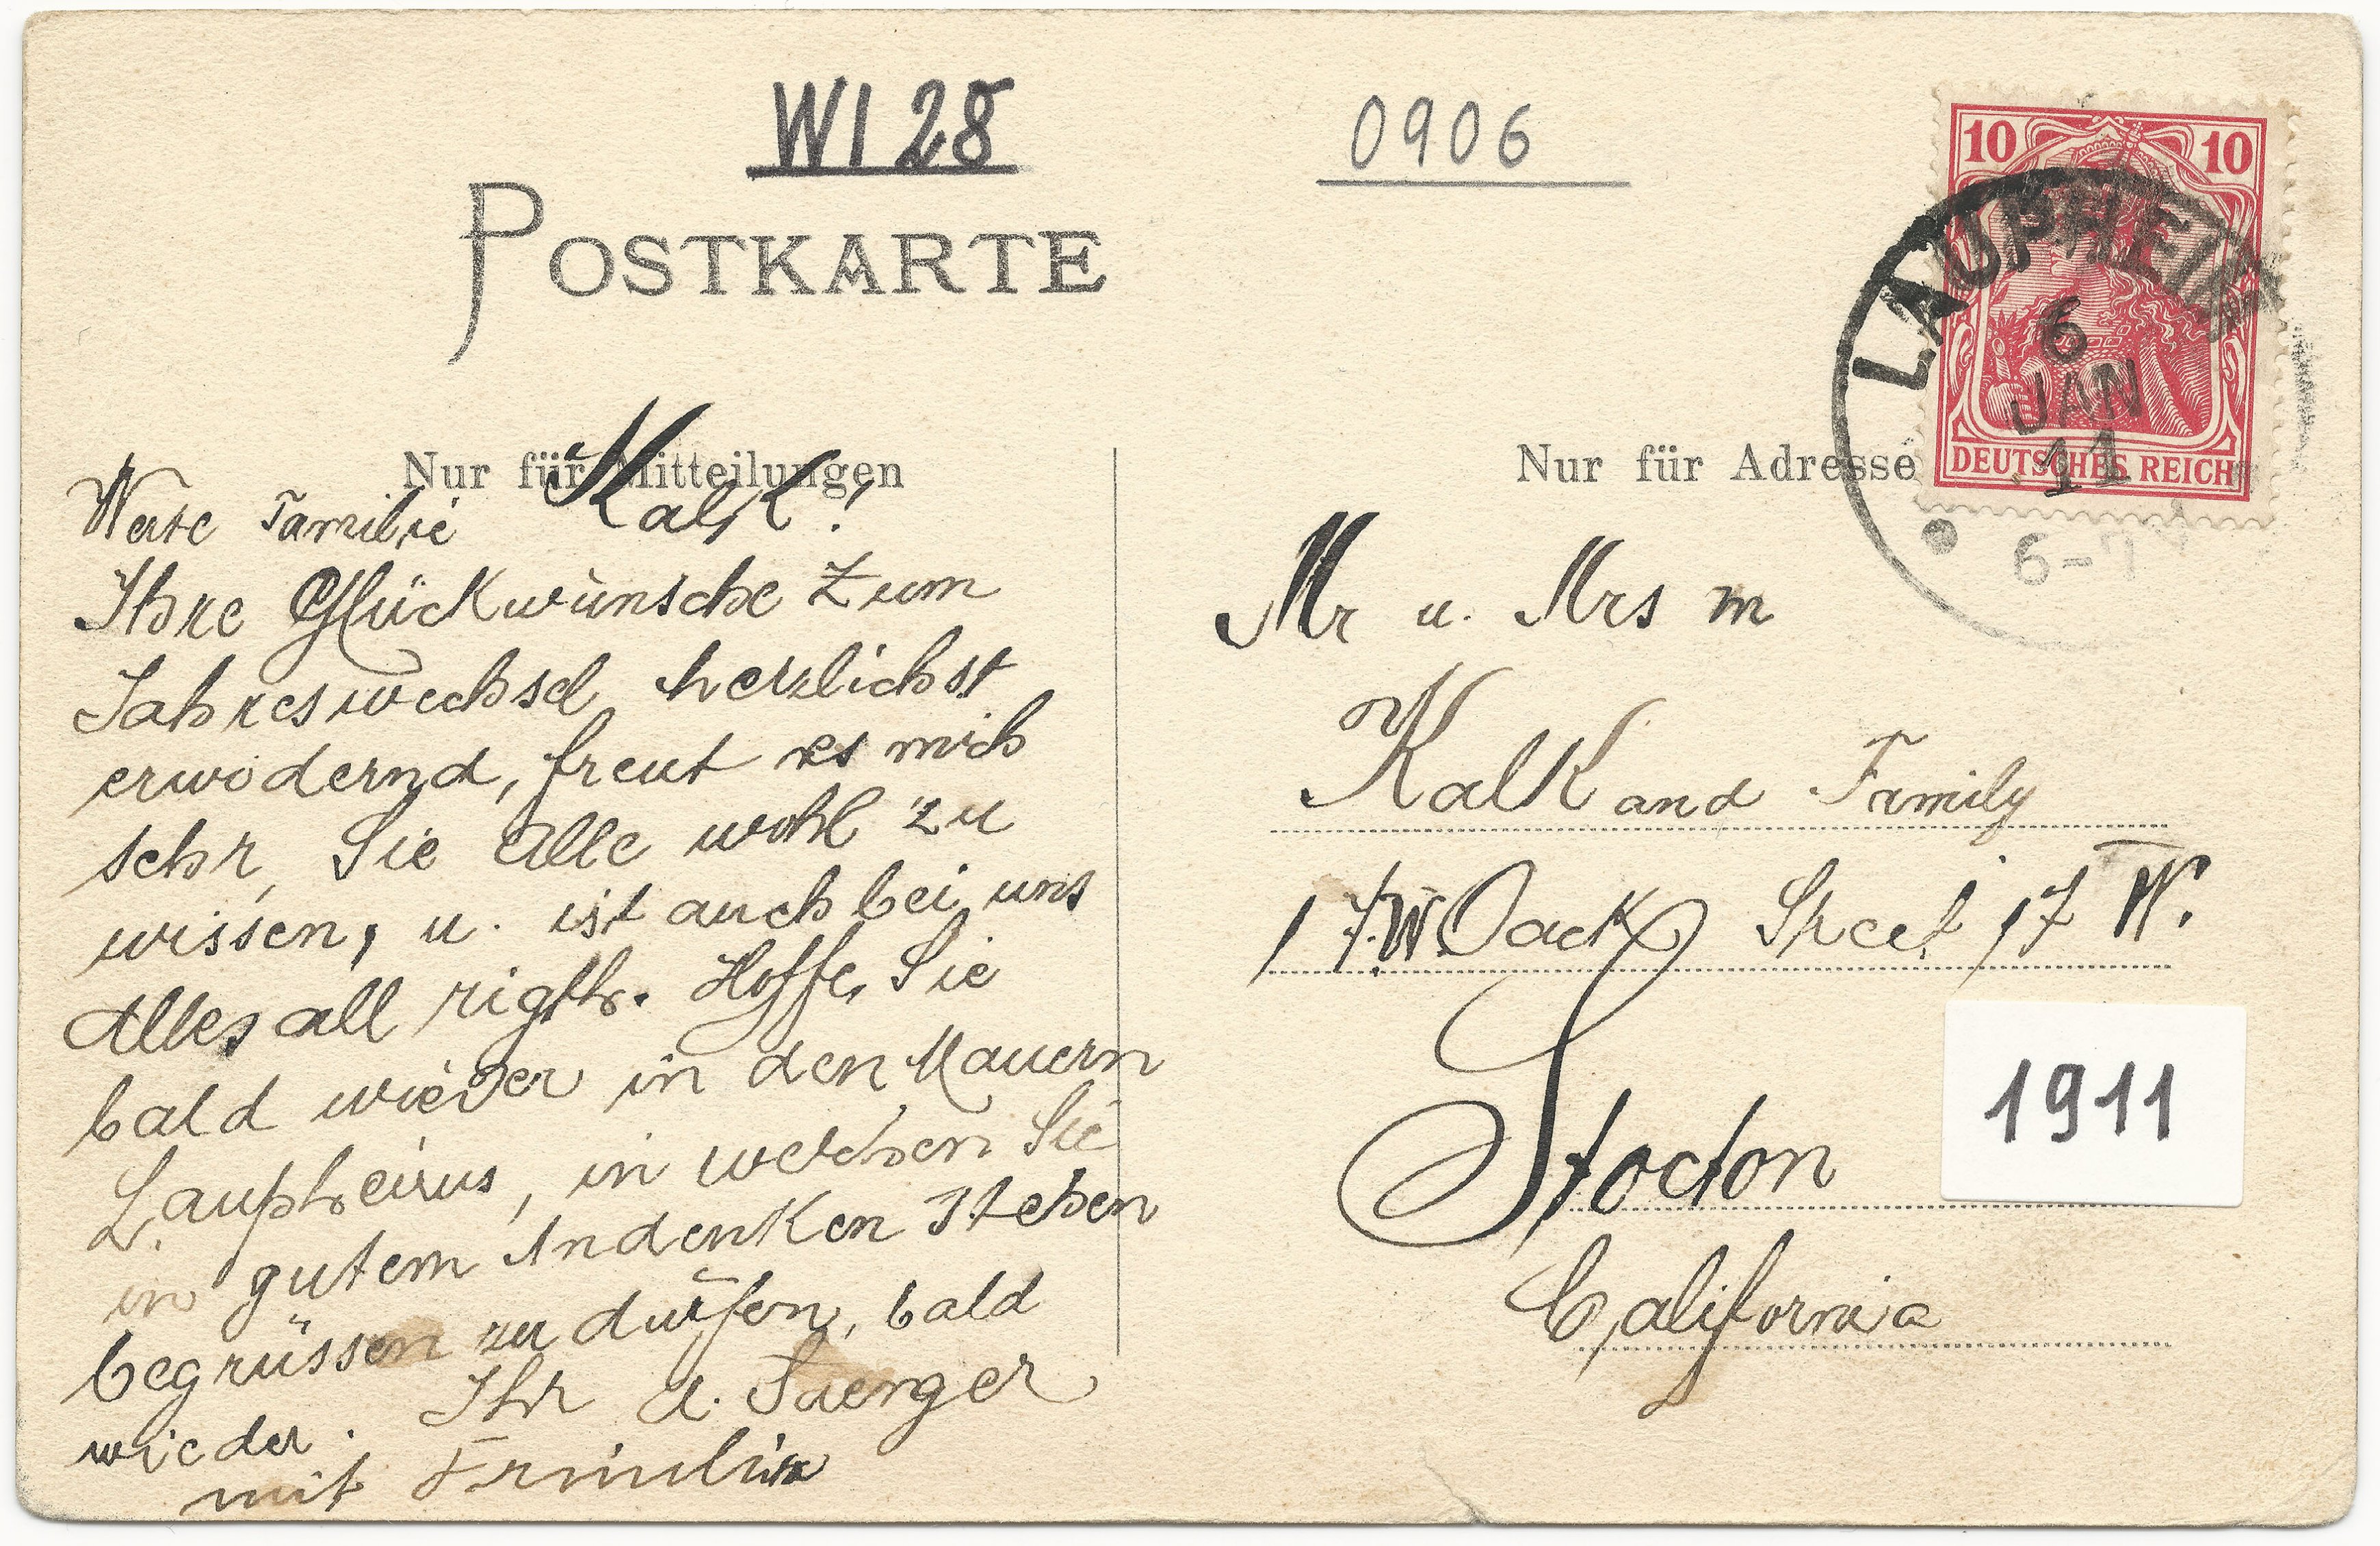 WI 28
0906
POSTKARTE
Nur für Mitteilungen
Werte Familie Kalk!
Ihre Glückwünsche zum
Jahreswechsel herzlichst
erwodernd, freut es mich
sehr, Sie Alle wohl zu
wissen, u. ist auch bei uns
Alles all rigth. Hoffe, Sie
bald wieder in den Mauern
Laupheims, in welchen Sie
in gutem Andenken stehen
begrüssen zu dürfen, bald
wieder. Ihr A. Saenger
mit Familie
Nur für Adresse
10 10
DEUTSCHES REICH
LAUPHEIM
6
JAN
11
6-7
Mr u. Mrs M
Kalk and Family
17.W. Oack Street 17 W.
Stocton
California
1911